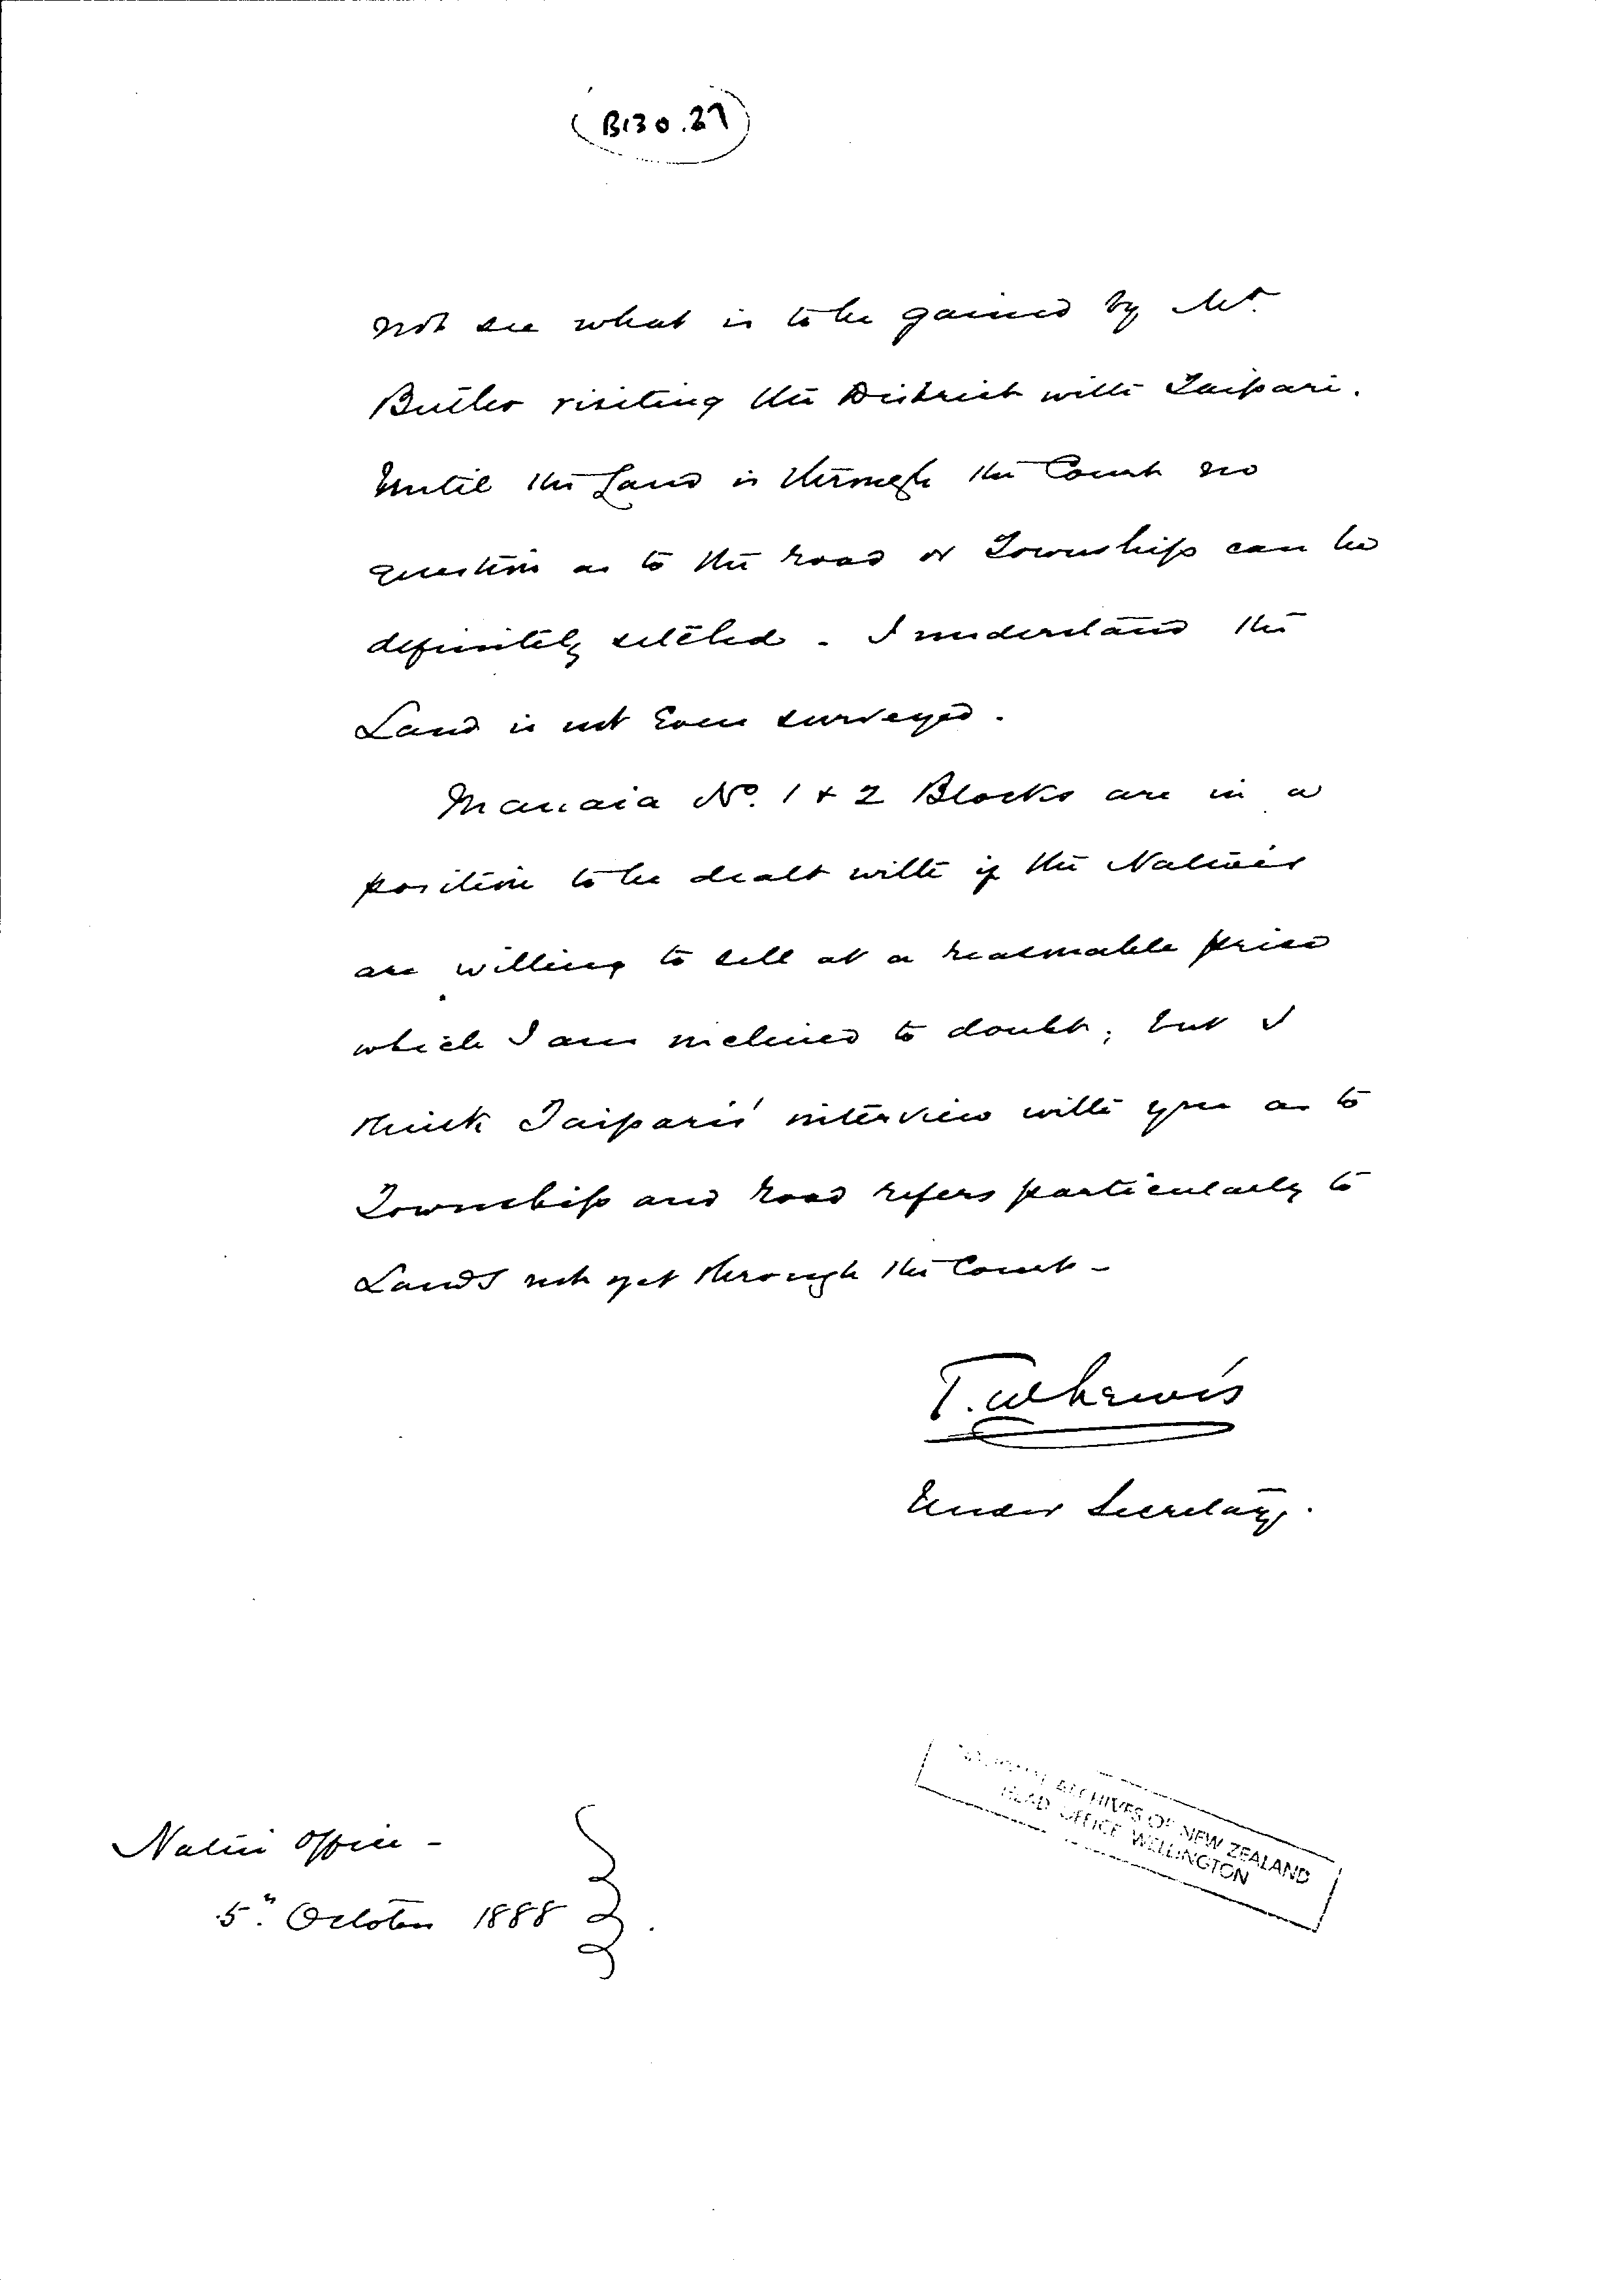 B130.27
not see what is to be gained by Mr.
Butler visiting the District with Taipari.
Until the Land is through the Court no
question as to the road or Township can be
definitely settled. I understand the
Land is not even surveyed.
Manaia No. 1 & 2 Blocks are in a
position to be dealt with if the Natives
are willing to sell at a reasonable price
which I am inclined to doubt, but I
think Taipari's interview with you as to
Township and road refers particularly to
Lands not yet through the Court -
T. W. Lewis
Under Secretary.
NATIONAL ARCHIVES OF NEW ZEALAND
HEAD OFFICE WELLINGTON
Native Office -
5" October 1888